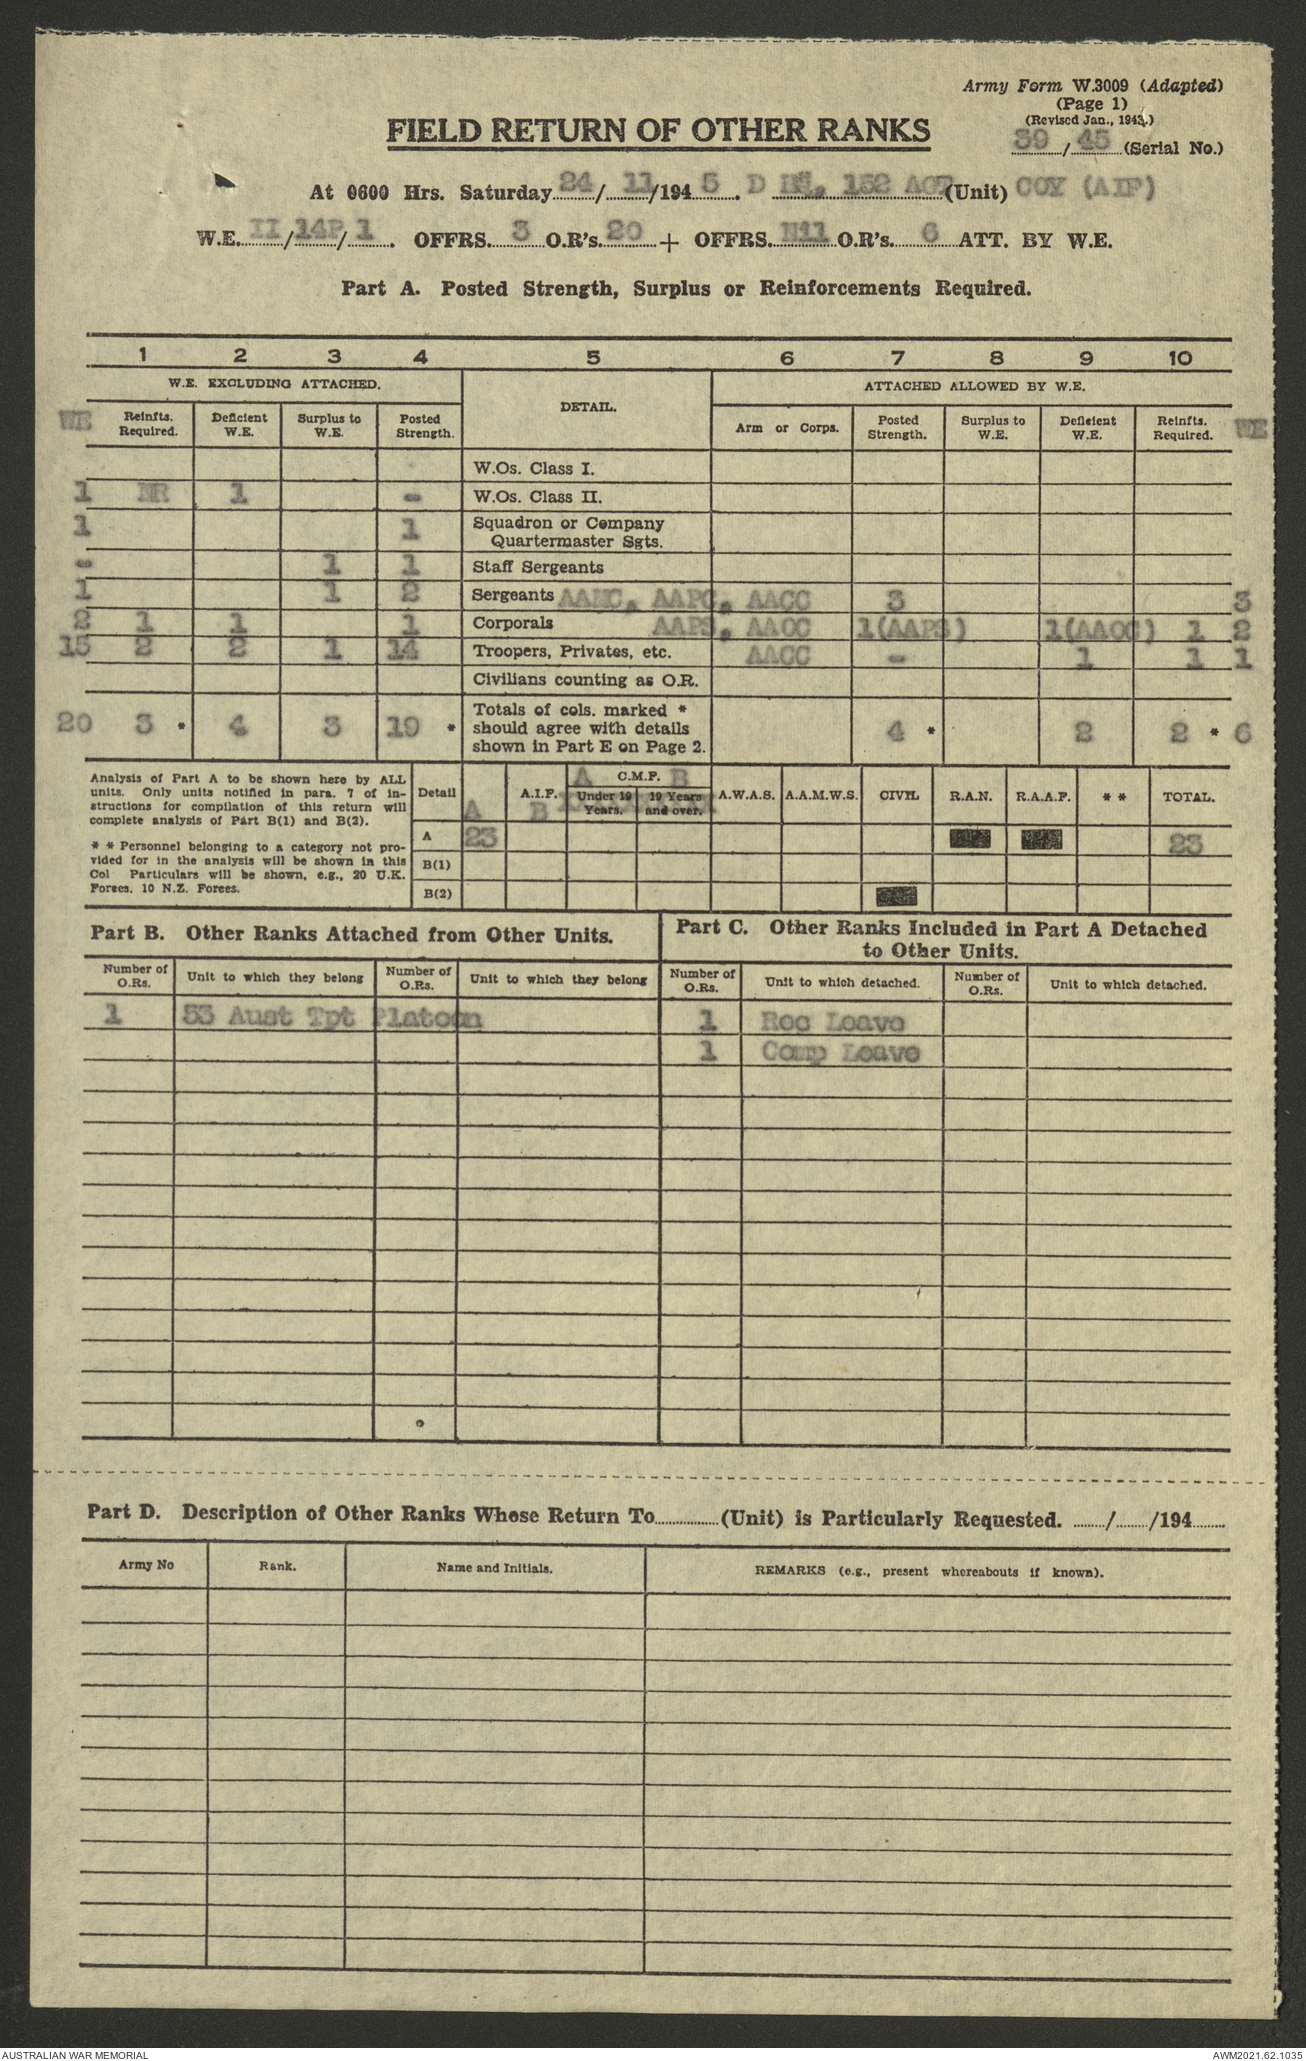 Army Form W.3009 (Adapted)
(Page 1)
(Revised Jan., 1943.)
39 / 45 (Serial No.)
FIELD RETURN OF OTHER RANKS
At 0600 Hrs. Saturday 24 / 11 /194 5 . D 152 (Unit) COY (AIF)
W.E. II / 14P / 1 . OFFRS. 3 O.R's. 20 + OFFRS. Nil O.R's. 6 ATT. BY W.E.
Part A. Posted Strength, Surplus or Reinforcements Required.
1 2 3 4 5 6 7 8 9 10
W.E. EXCLUDING ATTACHED. DETAIL. ATTACHED ALLOWED BY W.E.
WE Reinfts. Required. Deficient W.E. Surplus to W.E. Posted Strength. Arm or Corps. Posted Strength. Surplus to W.E. Deficient W.E. Reinfts. Required. WE
W.Os. Class I.
1 NR 1 - W.Os. Class II.
1 1 Squadron or Company
Quartermaster Sgts.
- 1 1 Staff Sergeants
1 1 2 Sergeants AAMC, AAPC, AACC 3 3
2 1 1 1 Corporals AAPS, AACC 1(AAPS) 1(AACC) 1 2
15 2 2 1 14 Troopers, Privates, etc. AACC - 1 1 1
Civilians counting as O.R.
20 3 * 4 3 19 * Totals of cols. marked *
should agree with details
shown in Part E on Page 2. 4 * 2 2 * 6
Analysis of Part A to be shown here by ALL
units. Only units notified in para. 7 of in-
structions for compilation of this return will
complete analysis of Part B(1) and B(2).
* * Personnel belonging to a category not pro-
vided for in the analysis will be shown in this
Col Particulars will be shown, e.g., 20 U.K.
Forces, 10 N.Z. Forces.
Detail A A.I.F. B A C.M.F. B Under 19 Years. 19 Years and over. A.W.A.S. A.A.M.W.S. CIVIL R.A.N. R.A.A.F. * * TOTAL.
A 23 23
B(1)
B(2)
Part B. Other Ranks Attached from Other Units.
Part C. Other Ranks Included in Part A Detached
to Other Units.
Number of O.Rs. Unit to which they belong Number of O.Rs. Unit to which they belong Number of O.Rs. Unit to which detached. Number of O.Rs. Unit to which detached.
1 53 Aust Tpt Platoon 1 Rec Leave
1 Comp Leave
Part D. Description of Other Ranks Whose Return To (Unit) is Particularly Requested. / /194
Army No Rank. Name and Initials. REMARKS (e.g., present whereabouts if known).
AUSTRALIAN WAR MEMORIAL AWM2021.62.1035